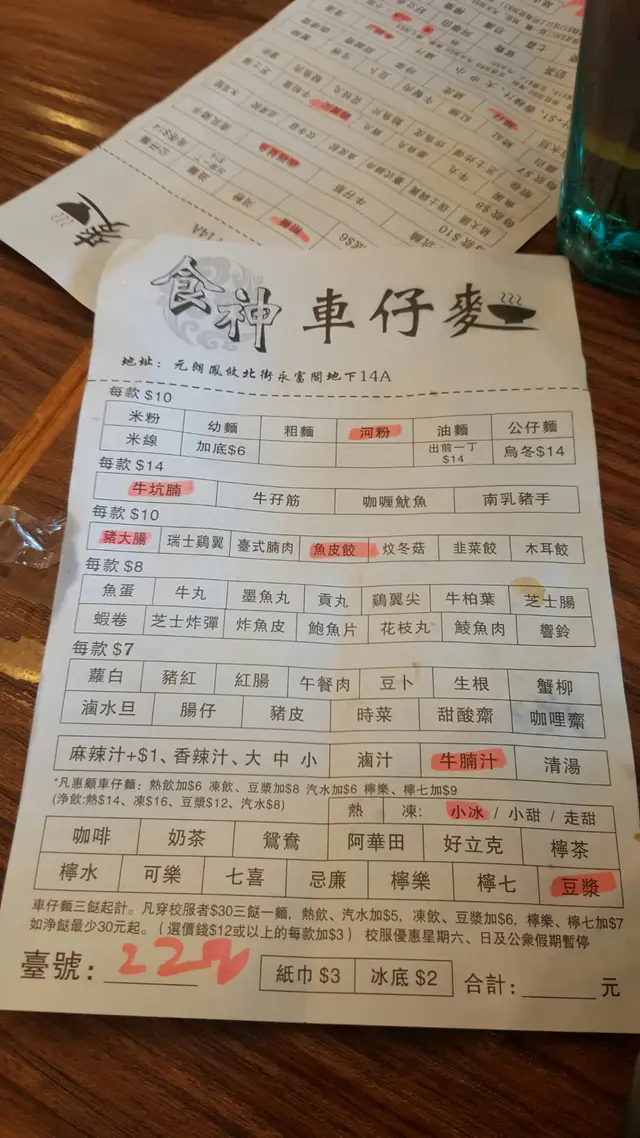 食神 車仔麵
地址：元朗鳳攸北街永富閣地下14A
每款 $10
米粉 幼麵 粗麵 河粉 油麵 公仔麵
米線 加底$6 出前一丁$14 烏冬$14
每款 $14
牛坑腩 牛孖筋 咖喱魷魚 南乳豬手
每款 $10
豬大腸 瑞士鷄翼 臺式腩肉 魚皮餃 炆冬菇 韭菜餃 木耳餃
每款 $8
魚蛋 牛丸 墨魚丸 貢丸 鷄翼尖 牛柏葉 芝士腸
蝦卷 芝士炸彈 炸魚皮 鮑魚片 花枝丸 鯪魚肉 響鈴
每款 $7
蘿白 豬紅 紅腸 午餐肉 豆卜 生根 蟹柳
滷水旦 腸仔 豬皮 時菜 甜酸齋 咖哩齋
麻辣汁+$1、香辣汁、大 中 小 滷汁 牛腩汁 清湯
*凡惠顧車仔麵：熱飲加$6 凍飲、豆漿加$8 汽水加$6 檸樂、檸七加$9
(净飲:熱$14、凍$16、豆漿$12、汽水$8)
熱 凍: 小冰 / 小甜 / 走甜
咖啡 奶茶 鴛鴦 阿華田 好立克 檸茶
檸水 可樂 七喜 忌廉 檸樂 檸七 豆漿
車仔麵三餸起計。凡穿校服者$30三餸一麵，熱飲、汽水加$5，凍飲、豆漿加$6，檸樂、檸七加$7
如净餸最少30元起。（選價錢$12或以上的每款加$3） 校服優惠星期六、日及公衆假期暫停
臺號：222 紙巾 $3 冰底 $2 合計：元